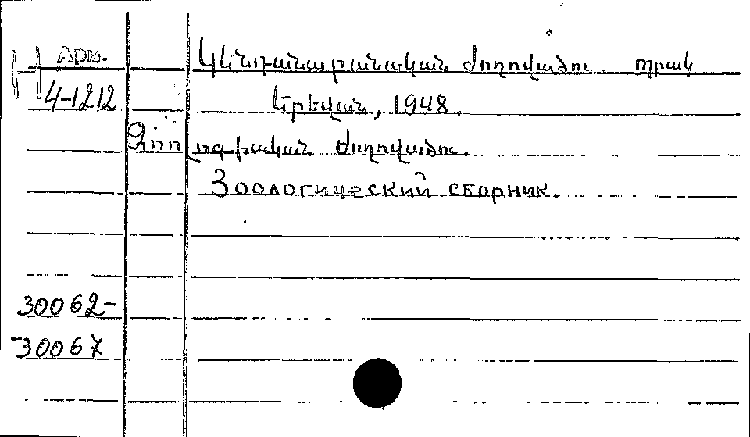 Арм.
4-1212
Կենդանաբանական ժողովածու պրակ
Երեվան, 1948.
Զոոլոգիական ժողովածու.
Зоологический сборник.
30062-
30067